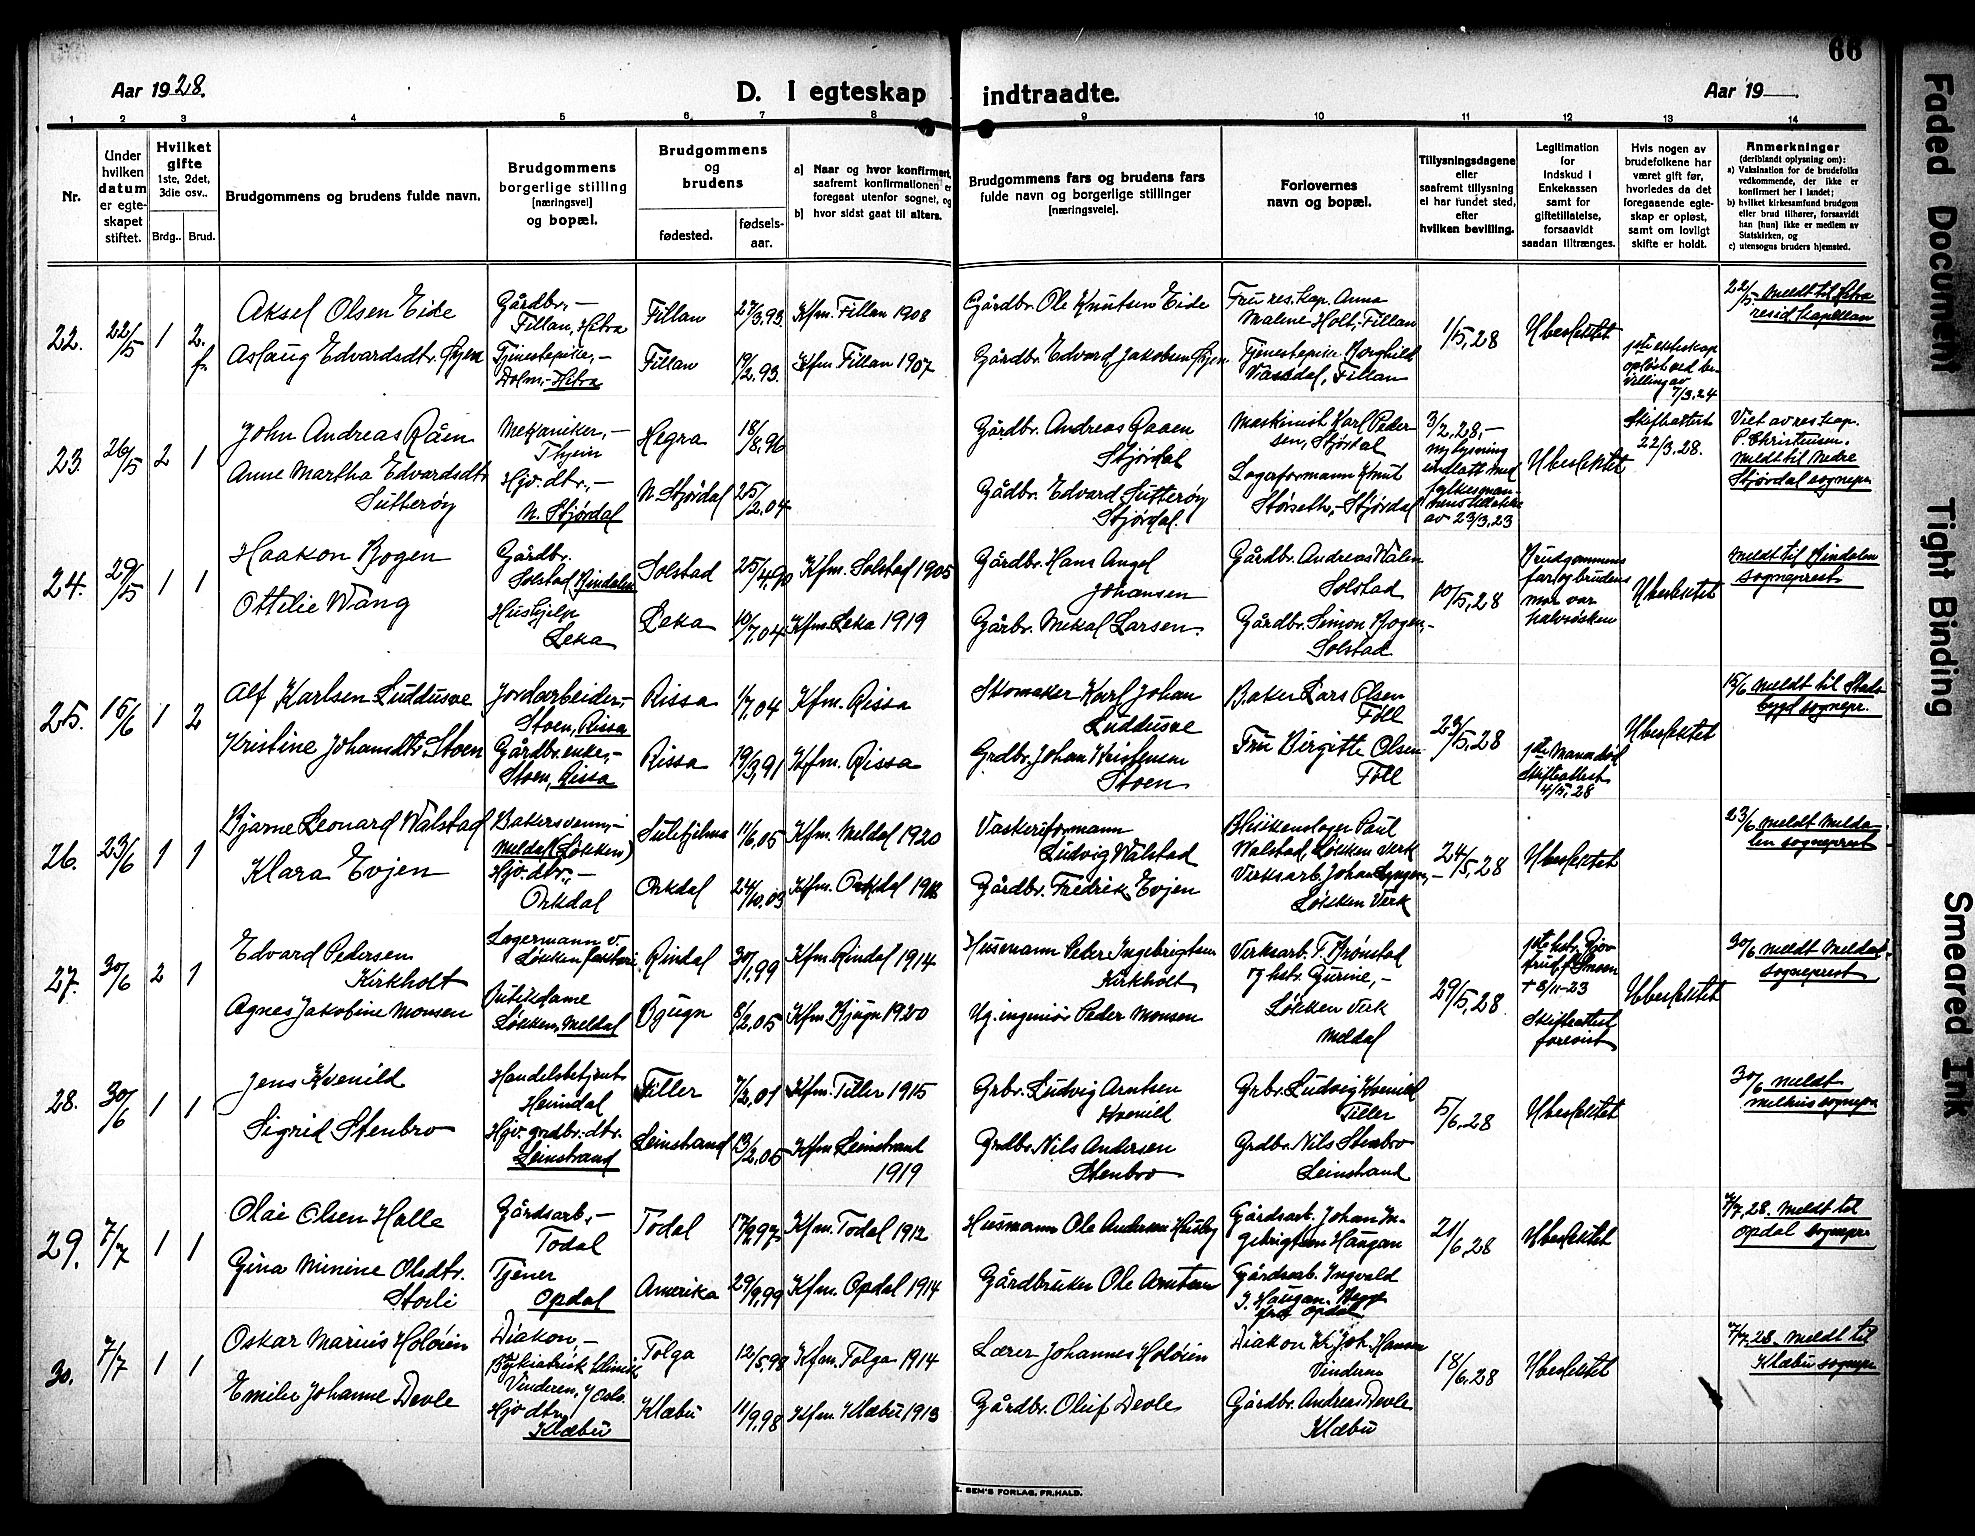 66
Aar 1928.
D. I egteskap indtraadte.
Aar 19
1 2 3 4 5 6 7 8 9 10 11 12 13 14
Nr.
Under hvilken datum er egteskapet stiftet.
Hvilket gifte 1ste, 2det, 3die osv..
Brdg.. Brud.
Brudgommens og brudens fulde navn.
Brudgommens borgerlige stilling [næringsvei] og bopæl.
Brudgommens og brudens
fødested.
fødsels-aar.
a) Naar og hvor konfirmert, saafremt konfirmationen er foregaat utenfor sognet, og
b) hvor sidst gaat til alters.
Brudgommens fars og brudens fars fulde navn og borgerlige stillinger [næringsveie].
Forlovernes navn og bopæl.
Tillysningsdagene eller saafremt tillysning ei har fundet sted, efter hvilken bevilling.
Legitimation for Indskud i Enkekassen samt for giftetillatelse, forsaavidt saadan tiltrænges.
Hvis nogen av brudefolkene har været gift før, hvorledes da det foregaaende egteskap er opløst, samt om lovligt skifte er holdt.
Anmerkninger (deriblandt oplysning om):
a) Vaksination for de brudefolks vedkommende, der ikke er konfirmert her i landet;
b) hvilket kirkesamfund brudgom eller brud tilhører, forsaavidt han [hun] ikke er medlem av Statskirken, og
c) utensogns bruders hjemsted.
22. 22/5 1 2. f.
Aksel Olsen Eide
Aslaug Edvardsdtr. Øyen
Gårdbr., –
Fillan, Hitra
Tjenestepike, –
Dolm, – Hitra
Fillan 27/3.93. Kfm. Fillan 1908
Fillan 19/2.93. Kfm Fillan 1907
Gårdbr. Ole Knutsen Eide
Gårdbr. Edvard Jakobsen Øyen
Fru res. kap. Anna
Maline Holt, Fillan
Tjenestepike Borghild
Vasdal, Fillan
1/5, 28
Ubeslektet
1ste ekteskap
opløst ved be-
villing av
7/3.24
22/5 Meldt til Hitra
resid. kapellan
23. 26/5 2 1
John Andreas Råen
Anne Martha Edvardsdtr
Sutterøy
Mekaniker, –
Thjem
Hjv. dtr., –
N. Stjørdal
Hegra 18/8.96
N. Stjørdal 25/2.04
Gårdbr. Andreas Raaen
Stjørdal
Gådbr. Edvard Sutterøy
Stjørdal.
Maskinist Karl Peder-
sen, Stjørdal
Lagerformann Knut
Størseth, – Stjørdal
3/2, 28, –
ny lysning
undlatt med
fylkesman-
nens tillatelse
av 23/3, 23
Ubeslektet
Skifteattest
22/3. 28.
Viet av res. kap.
P. Christensen.
Meldt til Nedre
Stjørdal sognepr.
24. 29/5 1 1
Haakon Bogen
Ottilie Wång
Gårdbr.
Solstad, Bindalen
Hushjelp
Leka
Solstad 25/4.90 Kfm. Solstad 1905
Leka 10/7.04 Kfm. Leka 1919
Gårdbr. Hans Angel
Johansen
Gårbr. Mekal Larsen.
Gårdbr. Andreas Walen
Solstad
Gårdbr. Simon Bogen, –
Solstad
10/5, 28
Brudgommens
far og brudens
mor var
halvsøsken
Ubeslektet
Meldt til Bindalen
sogneprest
25. 15/6 1 2
Alf Karlsen Luddusve
Kristine Johansdtr Stoen
Jordarbeider, –
Stoen, Rissa
Gårdbr. enke, –
Stoen, Rissa
Rissa 1/7.04 Kfm. Rissa
Rissa 19/3.91 Kfm. Rissa
Skomaker Karl Johan
Luddusve
Grdbr. Johan Kristensen
Stoen
Baker Lars Olsen
Föll
Fru Birgitte Olsen
Föll
23/5, 28
1ste Mann død
Skifteattest
4/5, 28
Ubeslektet
15/6 Meldt til Stads-
bygd sognepr.
26. 23/6 1 1
Bjarne Leonard Wålstad
Klara Evjen
Bakersvenn, –
Meldal (Løkken)
Hjv. dtr., –
Orkdal
Sulitjelma 11/6.05 Kfm. Meldal 1920
Orkdal 24/10.03 Kfm. Orkdal 1918
Vaskeriformann
Ludvig Wålstad
Gårdbr. Fredrik Evjen
Blikkenslager Paul
Walstad, Løkken Verk
Virksarb. Johan Lyngen, –
Løkken Verk
24/5, 28
Ubeslektet
23/6 Meldt Melda-
len sogneprest
27. 30/6 2 1
Edvard Pedersen
Kirkholt
Agnes Jakobine Monsen
Lagermann v.
Løkken faktori
Butikdame
Løkken, Meldal
Rindal 30/1.99 Kfm. Rindal 1914
Bjugn 8/2.05 Kfm Bjugn 1920
Husmann Peter Ingebrigtsen
Kirkholt
Ug. ingeniør Peder Monsen
Virksarb. T. Brønstad
og hstr. Gurine, –
Løkken Verk
Meldal
29/5, 28.
† 3/11-23
Skifteattest
forevist
Ubeslektet
30/6 Meldt Meldal-
sogneprest
28. 30/6 1 1
Jens Kvenild
Sigrid Stenbro
Handelsbetjent
Heimdal
Hjv. grdbr. dtr.
Leinstrand
Tiller 7/2.01 Kfm. Tiller 1915
Leinstrand 13/2.05 Kfm Leinstrand
1919
Grbr. Ludvig Arntsen
Kvenild
Grdbr. Nils Andersen
Stenbro
Grbr. Ludvig Kvenild
Tiller
Grdbr. Nils Stenbro
Leinstrand
5/6, 28
Ubeslektet
30/6 Meldt
Melhus sognepr.
29. 7/7 1 1
Olai Olsen Halle
Gina Minine Olsdtr.
Storli
Gårdsarb., –
Todal
Tjener
Opdal
Todal 17/2.97 Kfm. Todal 1912
Amerika 29/9.99 Kfm. Opdal 1914
Husmann Ole Andersen Husby
Gårdbruker Ole Arntsen
Gårdsarb. Johan In-
gebrigtsen Haugan
Gårdsarb. Ingvald
J. Haugan. Begge
fra Opdal
21/6, 28
Ubeslektet
7/7, 28. Meldt til
Opdal sognepr.
30. 7/7 1 1
Oskar Marius Holöien
Emilie Johanne Devle
Diakon, –
Psykiatrisk klinik
Vinderen, V. Oslo.
Hjv. dtr.
Klæbu
Tolga 12/5.98 Kfm. Tolga 1914
Klæbu 11/9.98 Kfm. Klæbu 1913
Lærer Johannes Holöien
Gårdbr. Oluf Devle
Diakon Kr. Joh. Hansen
Vinderen
Gårdbr. Andreas Devle
Klæbu
18/6, 28
Ubeslektet
7/7, 28. Meldt til
Klæbu sognepr.
E. SEM'S FORLAG, FR.HALD.
Faded Document
Tight Binding
Smeared Ink